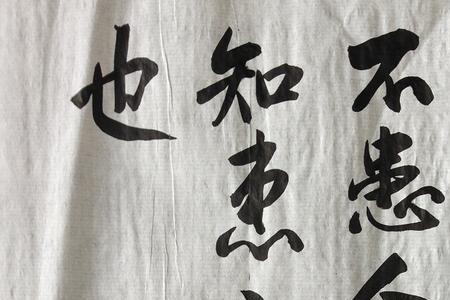 不患
知患
也